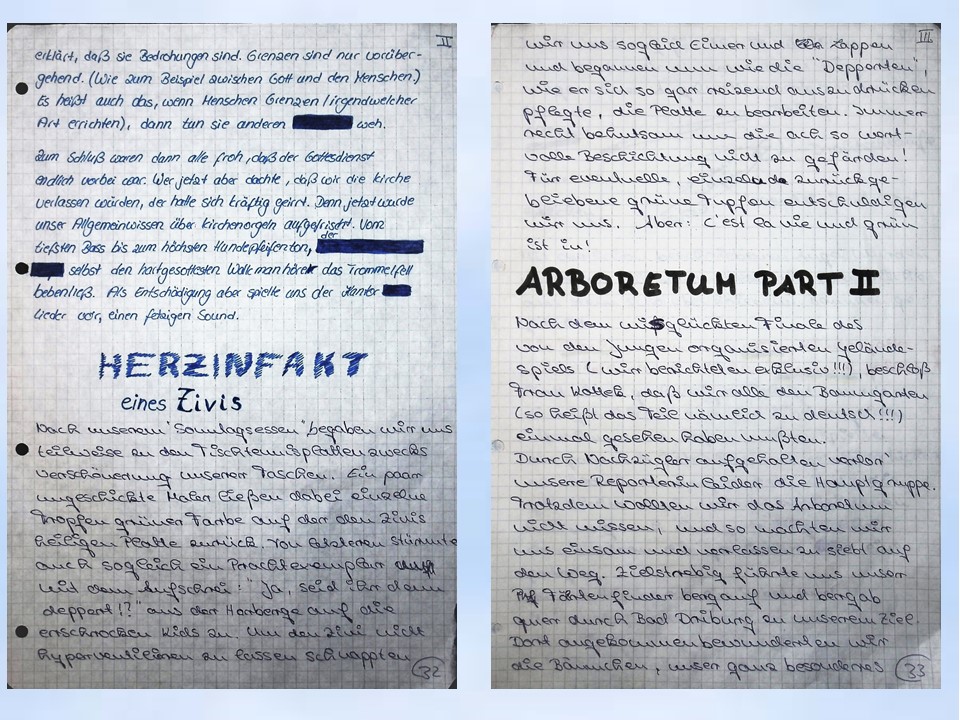 II
erklärt, daß sie Bedrohungen sind. Grenzen sind nur vorüber-
gehend. (Wie zum Beispiel zwischen Gott und den Menschen.)
Es heißt auch das, wenn Menschen Grenzen (irgendwelcher
Art errichten), dann tun sie anderen weh.
Zum Schluß waren dann alle froh, daß der Gottesdienst
endlich vorbei war. Wer jetzt aber dachte, daß wir die Kirche
verlassen würden, der hatte sich kräftig geirrt. Denn jetzt wurde
unser Allgemeinwissen über Kirchenorgeln aufgefrischt. Vom
tiefsten Bass bis zum höchsten Hundepfeifenton, der
selbst den hartgesottesten Walkmanhörer das Trommelfell
bebenließ. Als Entschädigung aber spielte uns der Kantor
Lieder vor, einen fetzigen Sound.
HERZINFAKT
eines Zivis
Nach unserem "Sonntagsessen" begaben wir uns
teilweise zu den Tischtennisplatten zwecks
Verschönerung unserer Taschen. Ein paar
ungeschickte Maler ließen dabei einzelne
Tropfen grüner Farbe auf der den Zivis
heiligen Platte zurück. Von letzteren stürmte
auch sogleich ein Prachtexemplar
mit dem Aufschrei: "Ja, seid ihr denn
deppert!?" aus der Herberge auf die
erschrocken Kids zu. Um den Zivi nicht
hyperventilieren zu lassen schnappten
32
III
wir uns sogleich Eimer und Lappen
und begannen nun wie die "Depporten",
wie er sich so gar reizend auszudrücken
pflegte, die Platte zu bearbeiten. Immer
recht behutsam um die ach so wert-
volle Beschichtung nicht zu gefärden!
Für eventuelle, einzelnde zurückge-
bliebene grüne Tupfen entschuldigen
wir uns. Aber: C'est la vie und grün
ist in!
ARBORETUM PART II
Nach dem mißglückten Finale des
von den Jungen organisierten Gelände-
spiels (wir berichteten exklusiv!!!), beschloß
Frau Kottek, daß wir alle den Baumgarten
(so heißt das Teil nämlich zu deutsch!!!)
einmal gesehen haben mußten.
Durch Nachzügler aufgehalten verlor
unsere Reporterin leider die Hauptgruppe.
Trotzdem wollten wir das Arboretum
nicht missen, und so machten wir
uns einsam und verlassen zu siebt auf
den Weg. Zielstrebig führte uns unser
Fährtenfinder bergauf und bergab
quer durch Bad Driburg zu unserem Ziel.
Dort angekommen bewunderten wir
die Bäumchen, unser ganz besonderes
33